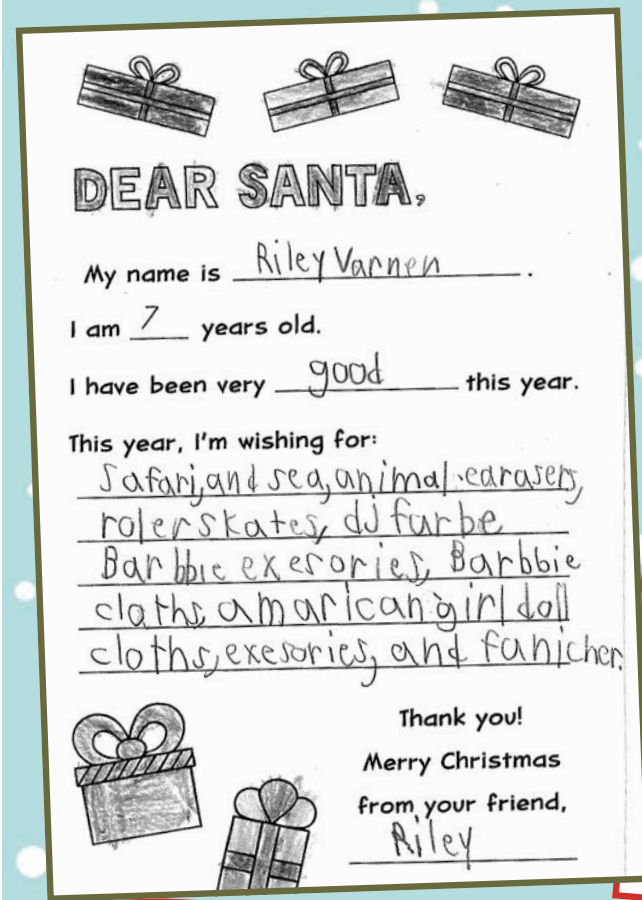 DEAR SANTA,
My name is Riley Varnen.
I am 7 years old.
I have been very good this year.
This year, I'm wishing for:
Safari, and sea, animal earasers,
rolerskates, dj furbe
Barbbie exerories, Barbbie
cloths, amarican girl doll
cloths, exesories, and fanicher.
Thank you!
Merry Christmas
from your friend,
Riley